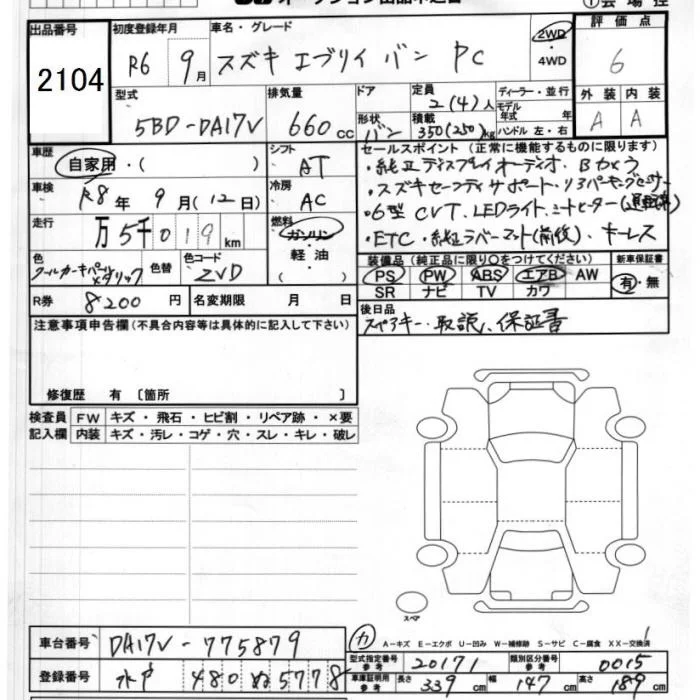 出品番号 2104
初度登録年月 R6 9月
車名・グレード スズキ エブリイ バン PC
2WD・4WD
評価点 6
型式 5BD-DA17V
排気量 660cc
ドア
形状 バン
定員 2(4)人
積載 350(250)kg
ディーラー・並行
モデル年式 年
ハンドル 左・右
外装 A 内装 A
車歴 自家用・( )
シフト AT
車検 R8年 9月(12日)
冷房 AC
走行 万5千019km
燃料 ガソリン・軽油・( )
色 クールカーキパールメタリック
色替
色コード ZVD
R券 8200円
名変期限 月 日
セールスポイント (正常に機能するものに限ります)
・純正ディスプレイオーディオ・Bカメラ
・スズキセーフティサポート・リヤパーキングセンサー
・6型 CVT、LEDライト、シートヒーター(運転席)
・ETC・純正ラバーマット(前後)、キーレス
装備品 (純正品に限り○をつけてください)
PS PW ABS エアB AW
SR ナビ TV カワ
新車保証書 有・無
後日品
スペアキー・取説、保証書
注意事項申告欄 (不具合内容等は具体的に記入して下さい)
修復歴 有 〔箇所 〕
検査員記入欄
FW キズ・飛石・ヒビ割・リペア跡・×要
内装 キズ・汚レ・コゲ・穴・スレ・キレ・破レ
スペア
車台番号 DA17V-775879
カ
A-キズ E-エクボ U-凹み W-補修跡 S-サビ C-腐食 XX-交換済
型式指定番号 参考 20171
類別区分番号 参考 0015
登録番号 水戸 480 ぬ 5778
車庫証明用 参考 長さ 339cm 幅 147cm 高さ 189cm